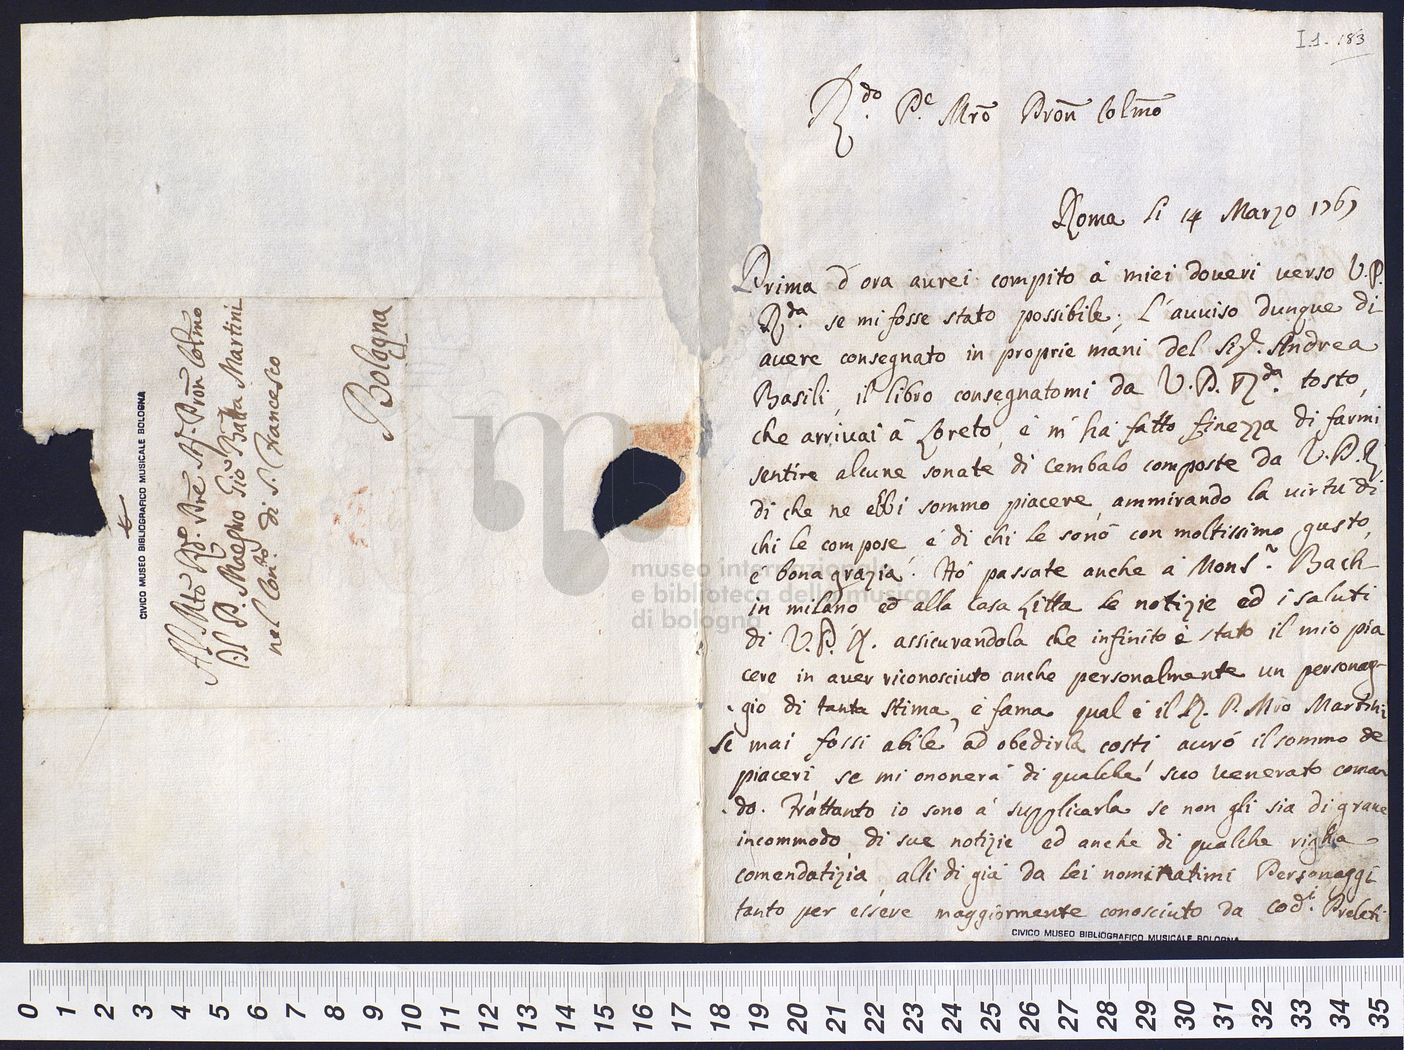 I.1. 183
R.do P.e Mro Pron Colmo
Roma li 14 Marzo 1767
Prima d'ora aurei compito à miei doueri uerso V.P.
R.da se mi fosse stato possibile; L'auuiso dunque di
auere consegnato in proprie mani del Sig.r Andrea
Basili, il libro consegnatomi da V.P. R.da tosto,
che arriuai à Loreto, e m'ha fatto finezza di farmi
sentire alcune sonate di Cembalo composte da V.P.R.
di che ne ebbi sommo piacere, ammirando la uirtù di
chi le compose, e di chi le sonò con moltissimo gusto,
e bona grazia. Hò passate anche à Mons.r Bach
in milano ed alla Casa Litta le notizie ed i saluti
di V.P.R. assicurandola che infinito è stato il mio pia
cere in auer riconosciuto anche personalmente un personag-
gio di tanta stima, e fama qual è il R. P. Mro Martini
Se mai fossi abile ad obedirla costì aurò il sommo de
piaceri se mi onorerà di qualche suo uenerato coman
do. Frattanto io sono à supplicarla se non gli sia di graue
incommodo di sue notizie ed anche di qualche righa
comendatizia, alli di già da Lei nominatimi Personaggi
tanto per essere maggiormente conosciuto da cod.i
CIVICO MUSEO BIBLIOGRAFICO MUSICALE BOLOGNA
All Mto Rdo. Pre Sig. Pron Colmo
Il P. Maestro Gio Batta Martini
nel Conto. di S. Francesco
Bologna
CIVICO MUSEO BIBLIOGRAFICO MUSICALE BOLOGNA
museo internazionale
e biblioteca della musica
di bologna
0 1 2 3 4 5 6 7 8 9 10 11 12 13 14 15 16 17 18 19 20 21 22 23 24 25 26 27 28 29 30 31 32 33 34 35